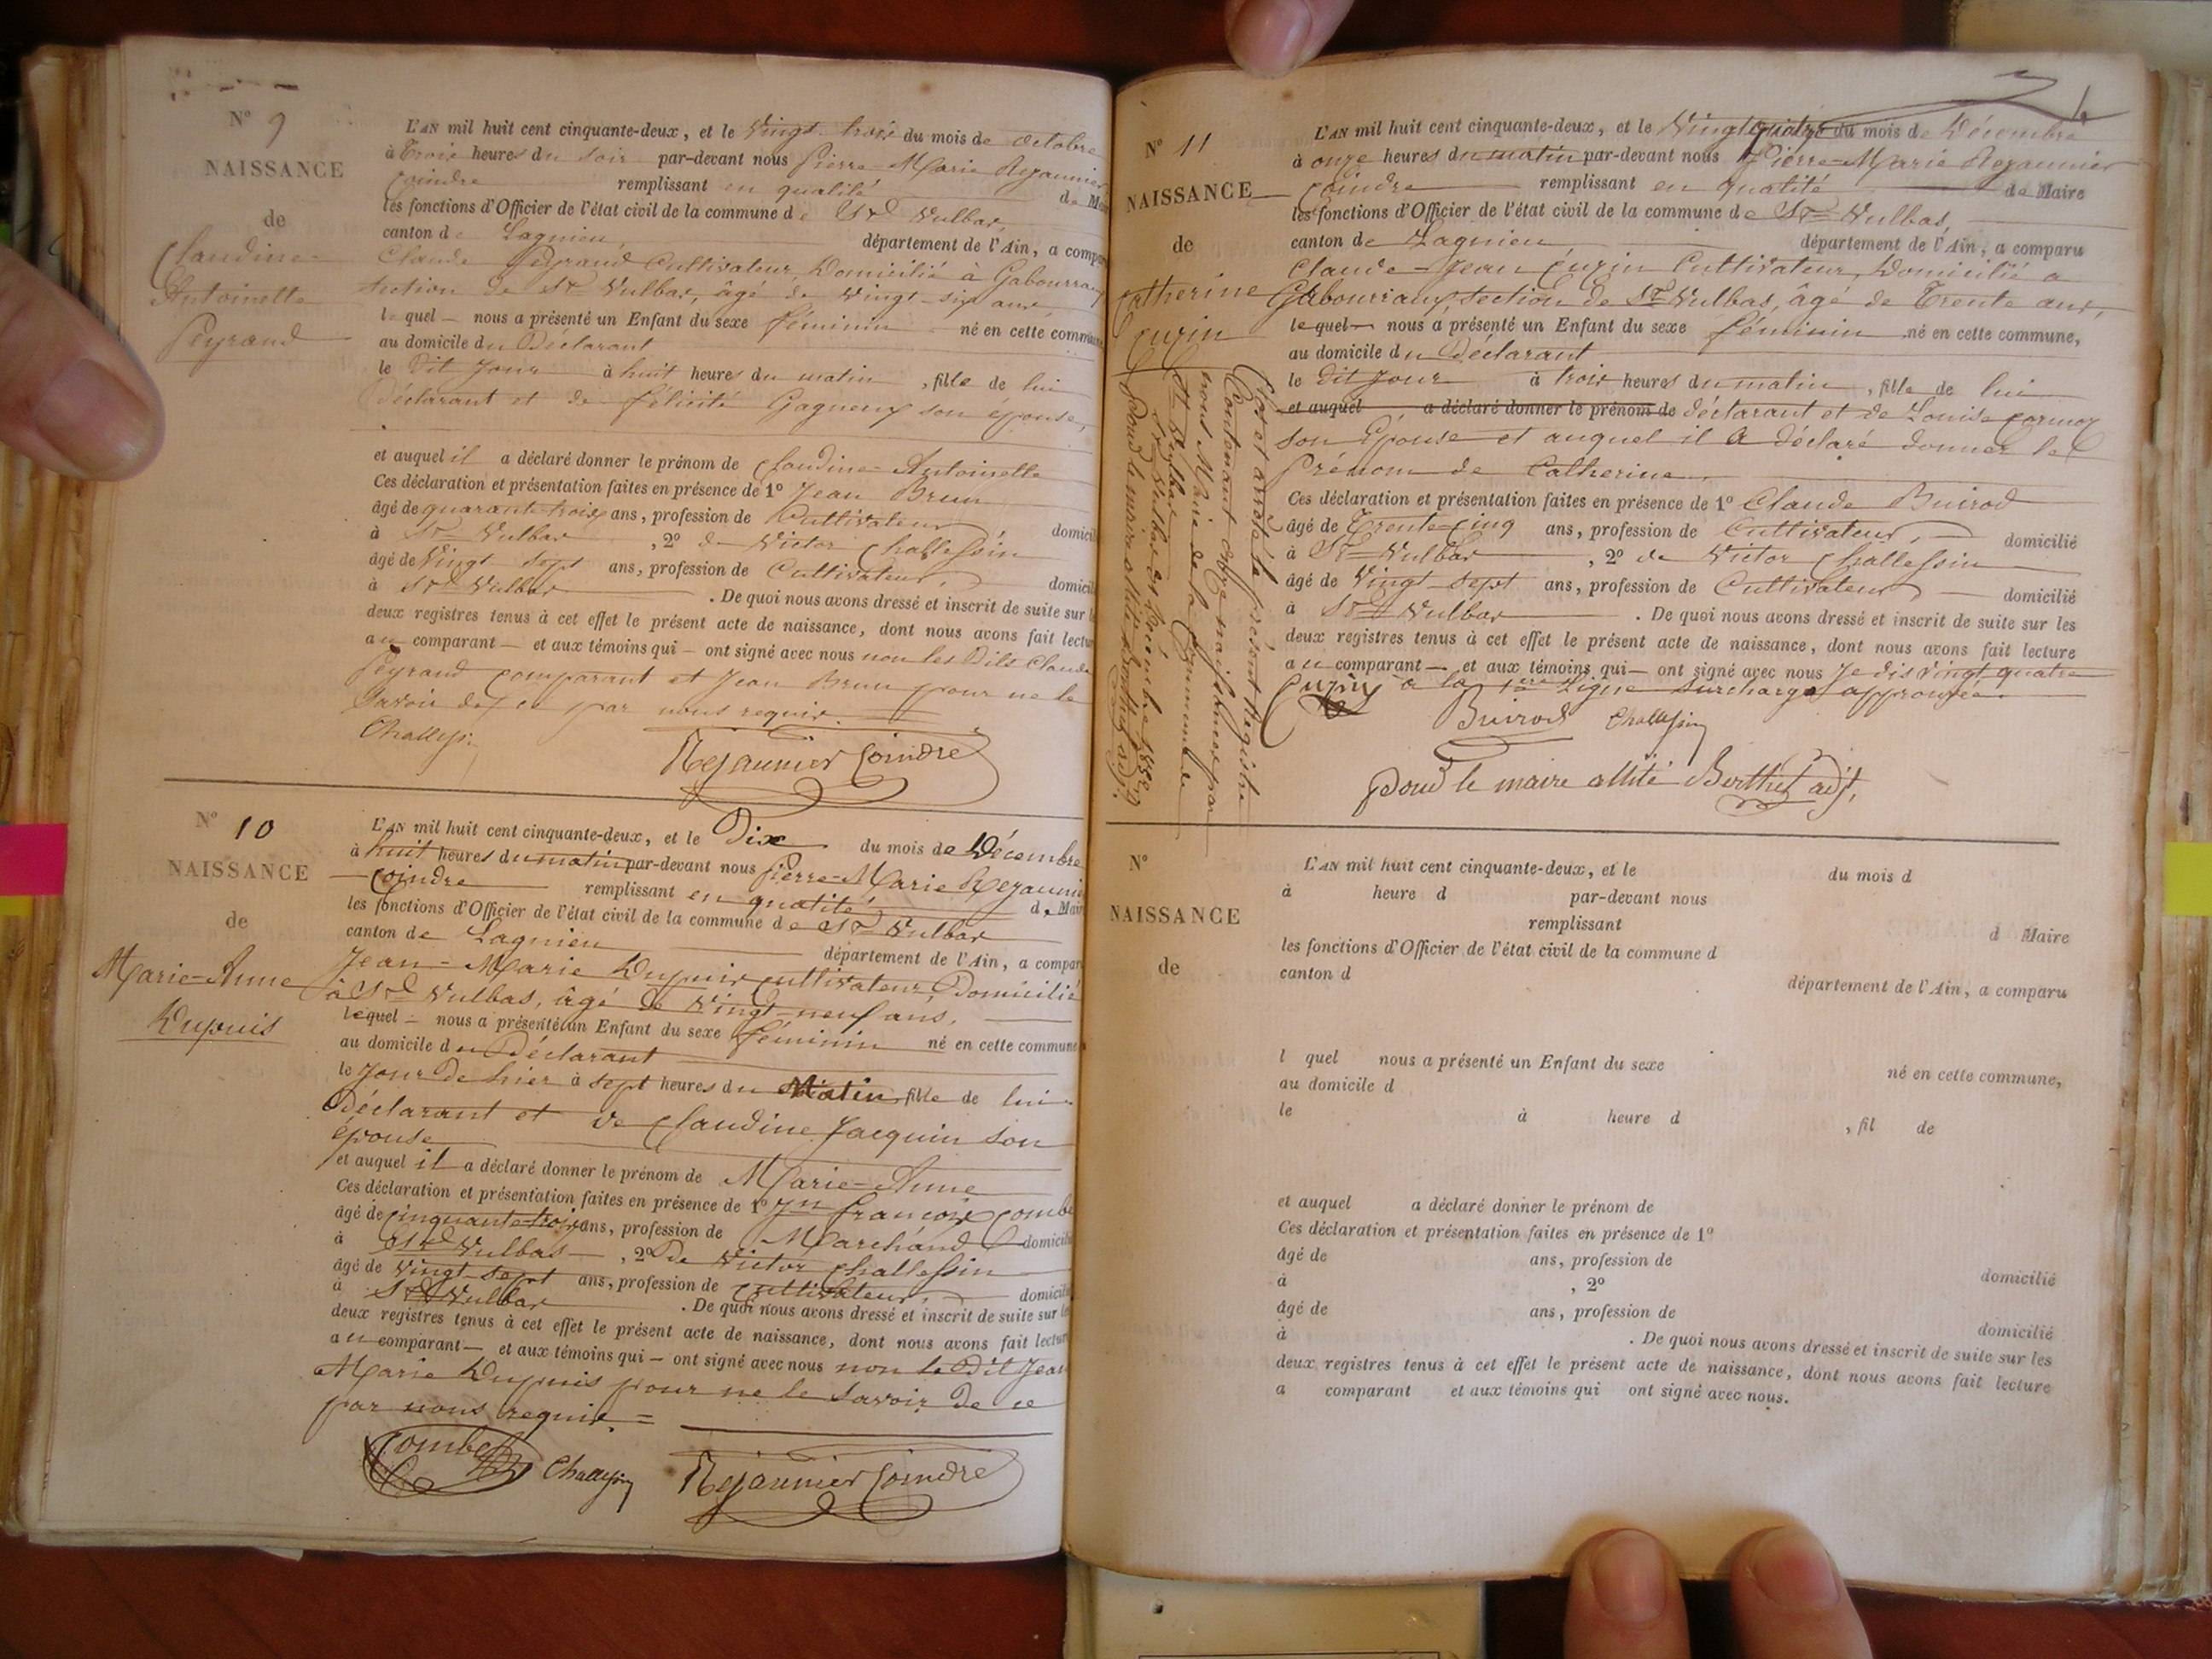 N° 9
NAISSANCE
de
Claudine-
Antoinette
Peyrand
L'AN mil huit cent cinquante-deux, et le Vingt trois du mois de octobre
à Trois heures du soir par-devant nous Pierre-Marie Rejaunier
Coindre remplissant en qualité de Mai
les fonctions d'Officier de l'état civil de la commune de St Vulbas,
canton de Lagnieu, département de l'Ain, a compa
Claude Peyrand Cultivateur, Domicilié à Gabourraux
section de St Vulbas, âgé de vingt-six ans,
lequel nous a présenté un Enfant du sexe féminin né en cette commune
au domicile du Déclarant
le Dit Jour à huit heures du matin, fille de lui
Déclarant et de félicité Gagneux son épouse,
et auquel il a déclaré donner le prénom de Claudine-Antoinette
Ces déclaration et présentation faites en présence de 1° Jean Brun
âgé de quarante-trois ans, profession de Cultivateur, domicili
à St Vulbas, 2° de Victor Challessin
âgé de Vingt sept ans, profession de Cultivateur, domicili
à St Vulbas. De quoi nous avons dressé et inscrit de suite sur le
deux registres tenus à cet effet le présent acte de naissance, dont nous avons fait lectur
au comparant et aux témoins qui ont signé avec nous non les Dits Claude
Peyrand comparant et Jean Brun pour ne le
savoir de ce par nous requis.
Challessin
Rejaunier Coindre
N° 10
NAISSANCE
de
Marie-Anne
Dupuis
L'AN mil huit cent cinquante-deux, et le Dix du mois de Décembre
à huit heures du matin par-devant nous Pierre-Marie Rejaunie
Coindre remplissant en qualité de Mair
les fonctions d'Officier de l'état civil de la commune de St Vulbas
canton de Lagnieu département de l'Ain, a compar
Jean-Marie Dupuis cultivateur, Domicilié
à St Vulbas, âgé de Vingt-neuf ans,
lequel nous a présenté un Enfant du sexe féminin né en cette commune
au domicile du Déclarant
le Jour De hier à sept heures du Matin, fille de lui
Déclarant et de Claudine Jacquin son
épouse
et auquel il a déclaré donner le prénom de Marie-Anne
Ces déclaration et présentation faites en présence de 1° Jn françois Combe
âgé de cinquante-trois ans, profession de Marchand domicili
à St Vulbas, 2° De Victor Challessin
âgé de Vingt-sept ans, profession de cultivateur, domicili
à St Vulbas. De quoi nous avons dressé et inscrit de suite sur le
deux registres tenus à cet effet le présent acte de naissance, dont nous avons fait lectur
au comparant et aux témoins qui ont signé avec nous non le Dit Jean
Marie Dupuis pour ne le savoir De ce
par nous requis.=
Combe Challessin Rejaunier Coindre
N° 11
NAISSANCE
de
Catherine
Cuzin
Clos et arrêté le présent Registre
Contenant onze naissances par
nous Maire de la Commune de
St Vulbas
St Vulbas 31 Décembre 1852
Pour le maire allité Berthet adj.
L'AN mil huit cent cinquante-deux, et le Vingt quatre du mois de Décembre
à onze heures du matin par-devant nous Pierre-Marie Rejaunier
Coindre remplissant en qualité de Maire
les fonctions d'Officier de l'état civil de la commune de St Vulbas,
canton de Lagnieu, département de l'Ain, a comparu
Claude-Jean Cuzin Cultivateur, Domicilié a
Gabourraux, section de St Vulbas, âgé de Trente ans,
lequel nous a présenté un Enfant du sexe féminin né en cette commune,
au domicile du Déclarant
le Dit Jour à trois heures du matin, fille de lui
et auquel a déclaré donner le prénom de déclarant et de Louise cormoz
son Epouse et auquel il a déclaré donner le
Prénom de Catherine
Ces déclaration et présentation faites en présence de 1° Claude Buirod
âgé de Trente-cinq ans, profession de Cultivateur, domicilié
à St Vulbas, 2° de Victor Challessin
âgé de Vingt sept ans, profession de Cultivateur domicilié
à St Vulbas. De quoi nous avons dressé et inscrit de suite sur les
deux registres tenus à cet effet le présent acte de naissance, dont nous avons fait lecture
au comparant et aux témoins qui ont signé avec nous Je dis vingt quatre
à la 1ere Ligne surcharge approuvée.
Cuzin Buirod Challessin
Pour le maire allité Berthet adjt,
N°
NAISSANCE
de
L'AN mil huit cent cinquante-deux, et le du mois d
à heure d par-devant nous
remplissant d Maire
les fonctions d'Officier de l'état civil de la commune d
canton d département de l'Ain, a comparu
l quel nous a présenté un Enfant du sexe né en cette commune,
au domicile d
le à heure d , fil de
et auquel a déclaré donner le prénom de
Ces déclaration et présentation faites en présence de 1°
âgé de ans, profession de domicilié
à , 2°
âgé de ans, profession de domicilié
à . De quoi nous avons dressé et inscrit de suite sur les
deux registres tenus à cet effet le présent acte de naissance, dont nous avons fait lecture
a comparant et aux témoins qui ont signé avec nous.